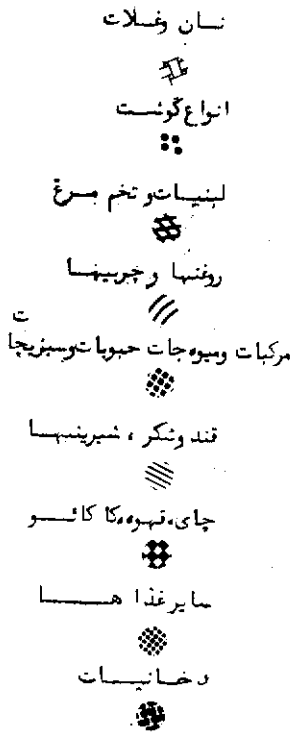 نان وغلات
انواع گوشت
لبنیات و تخم مرغ
روغنها و چربیها
مرکبات و میوه جات حبوبات و سبزیجات
قند و شکر ، شیرینیها
چای، قهوه، کاکائو
سایر غذا ها
دخانیات